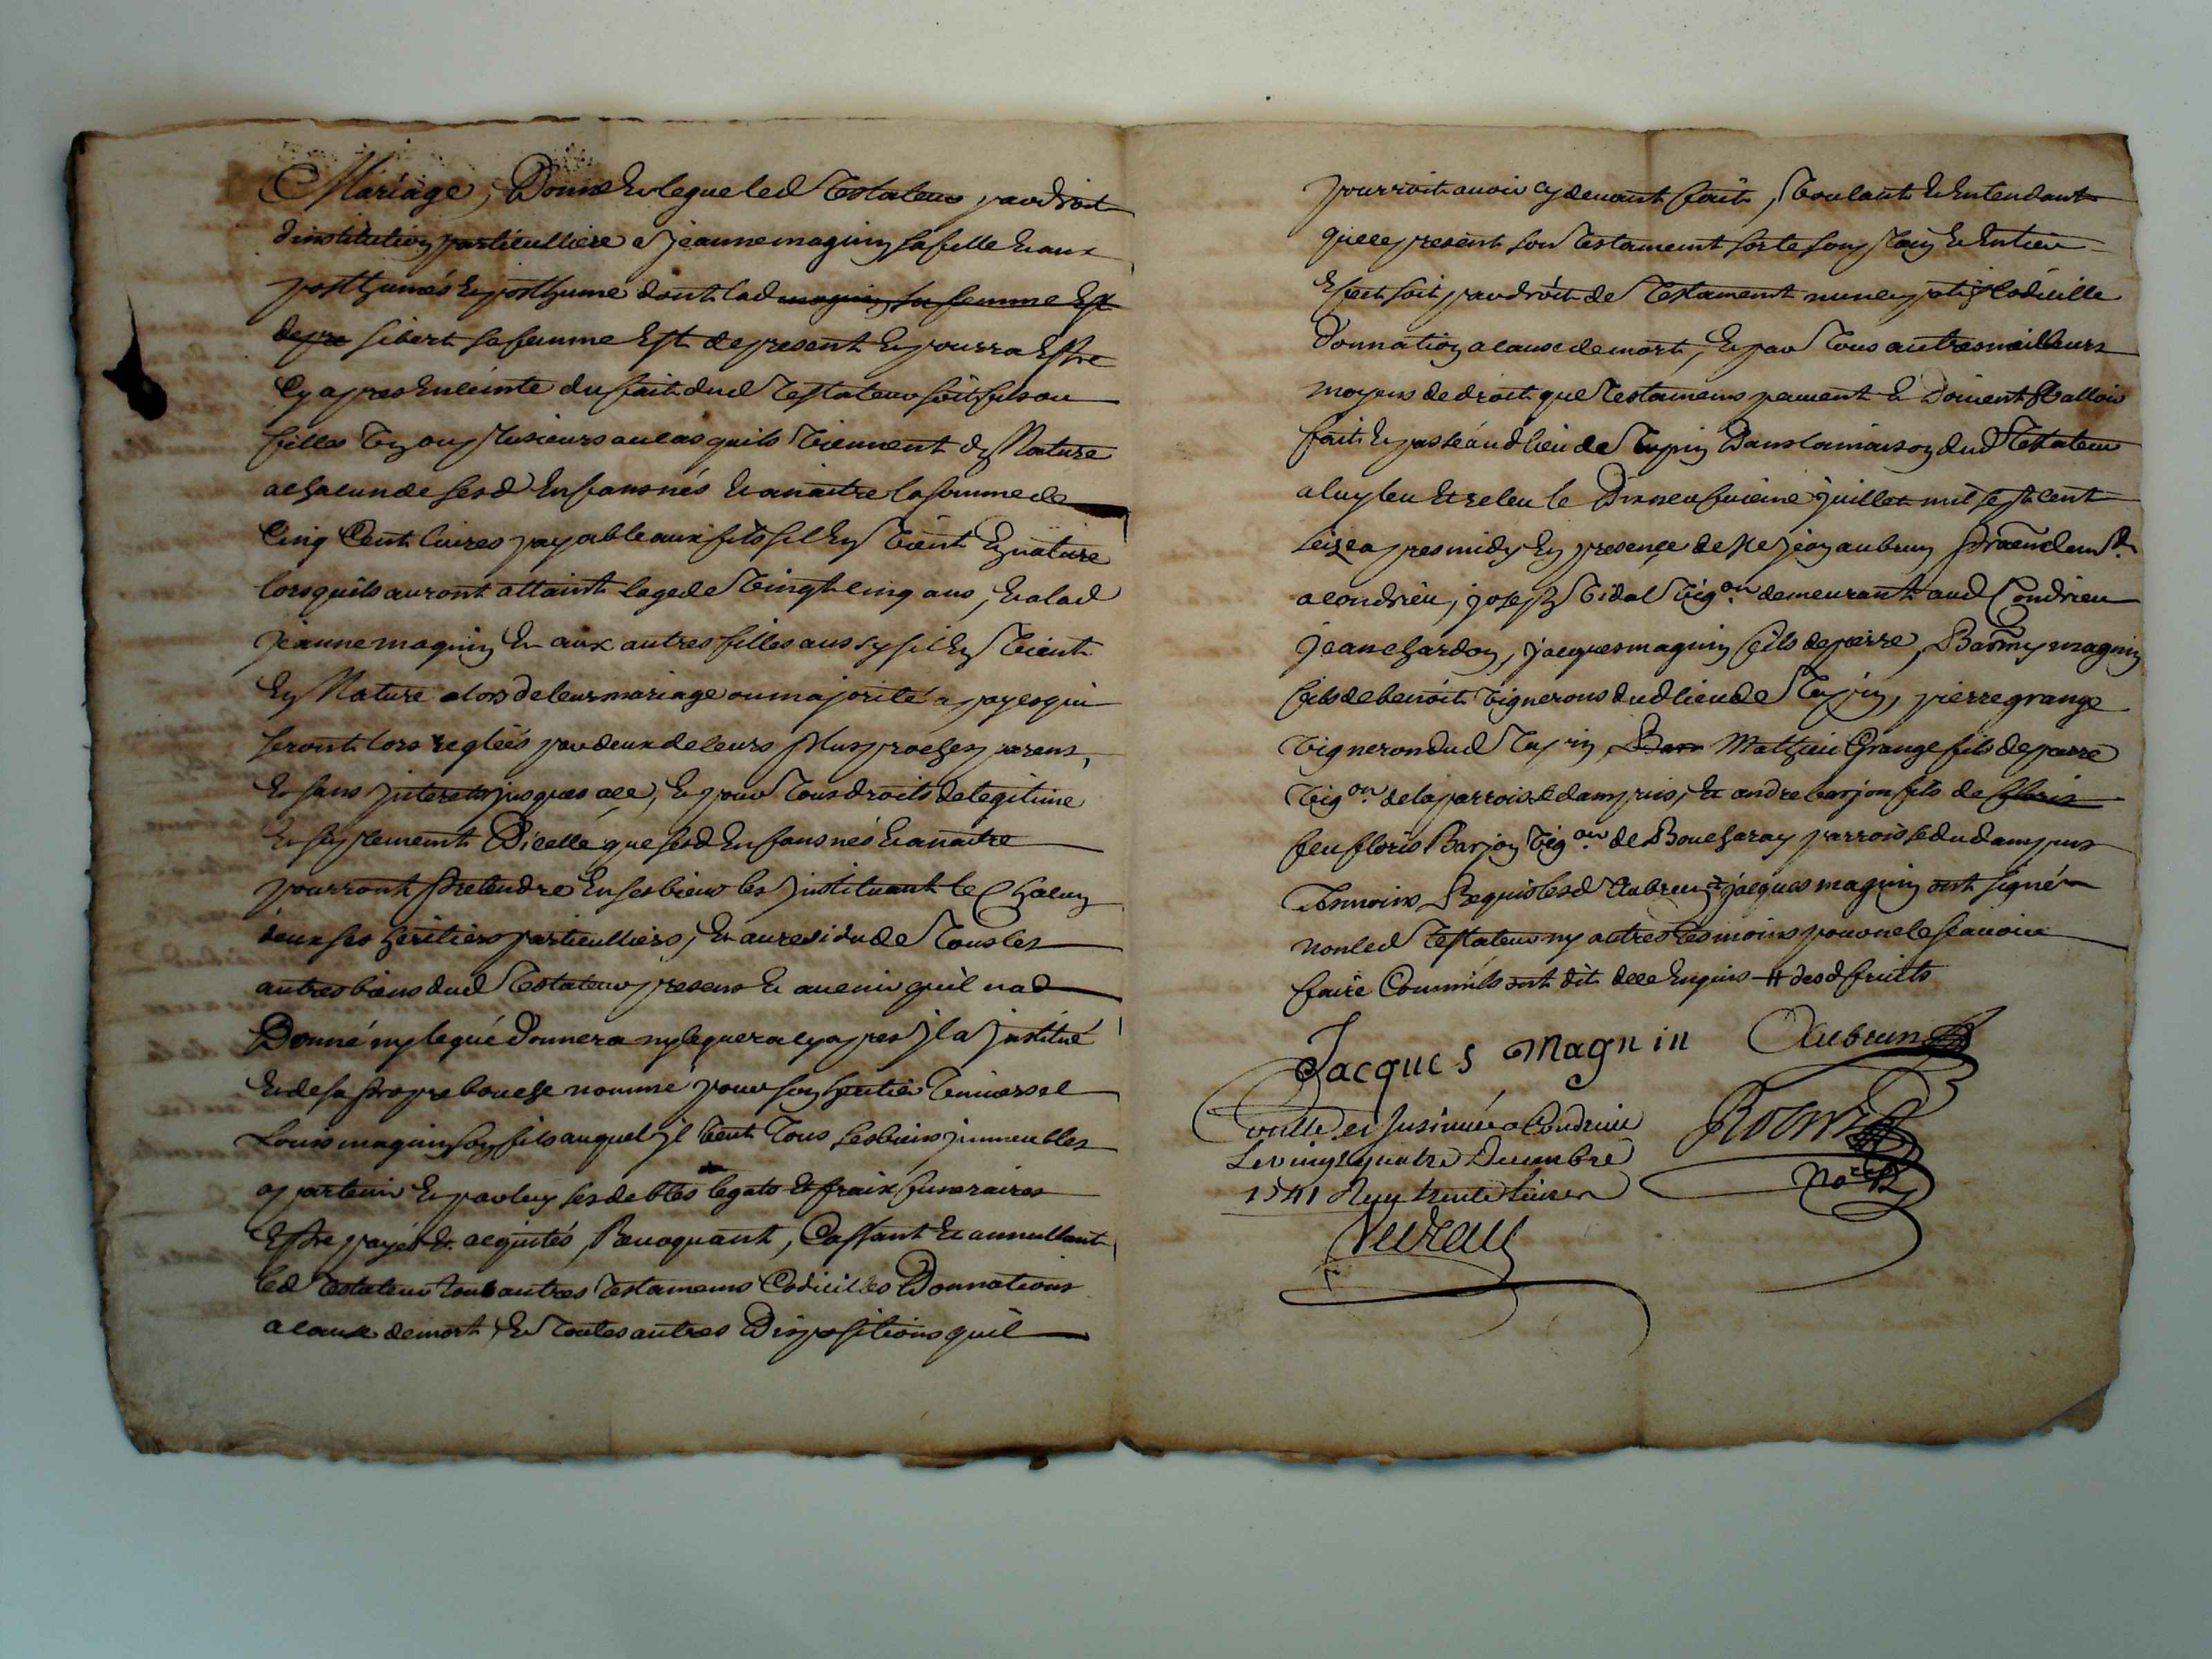 Mariage, Donne et legue led Testateur par droit
dinstitution particulliere a jeanne magnin sa fille et aux
posthumes et posthume dont lad magnin sa femme est
depre sibert sa femme est de present et pourra estre
cy apres enceinte du fait dud Testateur soit fils ou
filles un ou plusieurs au cas quils viennent en Nature
a chacun de sesd enfans nés et a naitre la somme de
Cinq Cent livres payable aux fils sil en vient en nature
lors quils auront attaint lage de vingt cinq ans, et a lad
jeanne magnin et aux autres filles aussy sil en vient
en Nature alors de leur mariage ou majorité a payes qui
seront lors reglées par deux de leurs plus proches parens,
et sans interets jusques a ce, et pour tous droits de legitime
et suplement Dicelle que sesd enfans nés et a naitre
pourront pretendre en ses biens les instituant le Chacun
deux ses heritiers particulliers, et au residu de Tous les
autres biens dud Testateur presens et avenir quil na
Donné ny legué donnera ny leguera cy apres il a institué
et de sa propre bouche nommé pour son heritier universel
Louis magnin son fils auquel il veut Tous ses biens immeubles
apartenir et par luy ses debtes legats et fraix funeraires
estre payés et acquités, Revoquant, Cassant et annullant
led Testateur tous autres Testamens Codicilles Donnations
a cause de mort, et toutes autres Dispositions quil
pourroit avoir cy devant fait, voulant et entendant
que ce present son Testament sorte son plain et entier
effect soit par droit de Testament nuncupatif Codicille
Donnation a cause de mort, et par tous autres meilleurs
moyens de droit que Testamens peuvent et doivent valloir
fait et passé aud lieu de Tupin Dans la maison dud Testateur
a luy leu et releu le Dixneufvieme juillet mil sept cent
seize apres midy en presence de Me jean aubrun
a condrieu, joseph vidal vigon demeurant aud Condrieu
jean chardon, jacques magnin fils de pierre, Barmy magnin
fils de benoit vignerons dud lieu de Tupin, pierre grange
vigneron dud Tupin, Bar Mathieu Grange fils de pierre
vigon de la parroisse dampuis, et andre barjon fils de floris
feu floris Barjon vigon de Boucharay parroisse dud ampuis
Temoins Requis lesd Aubrun et jacques magnin ont signé
non led Testateur ny autres tesmoins pour ne le scavoir
faire Comm ils ont dit de ce enquis # desd fruits
Jacques Magnin Aubrun
Controllé et insinué a Condrieu
Le vingt quatre Decembre
1741 Reçu trente livres